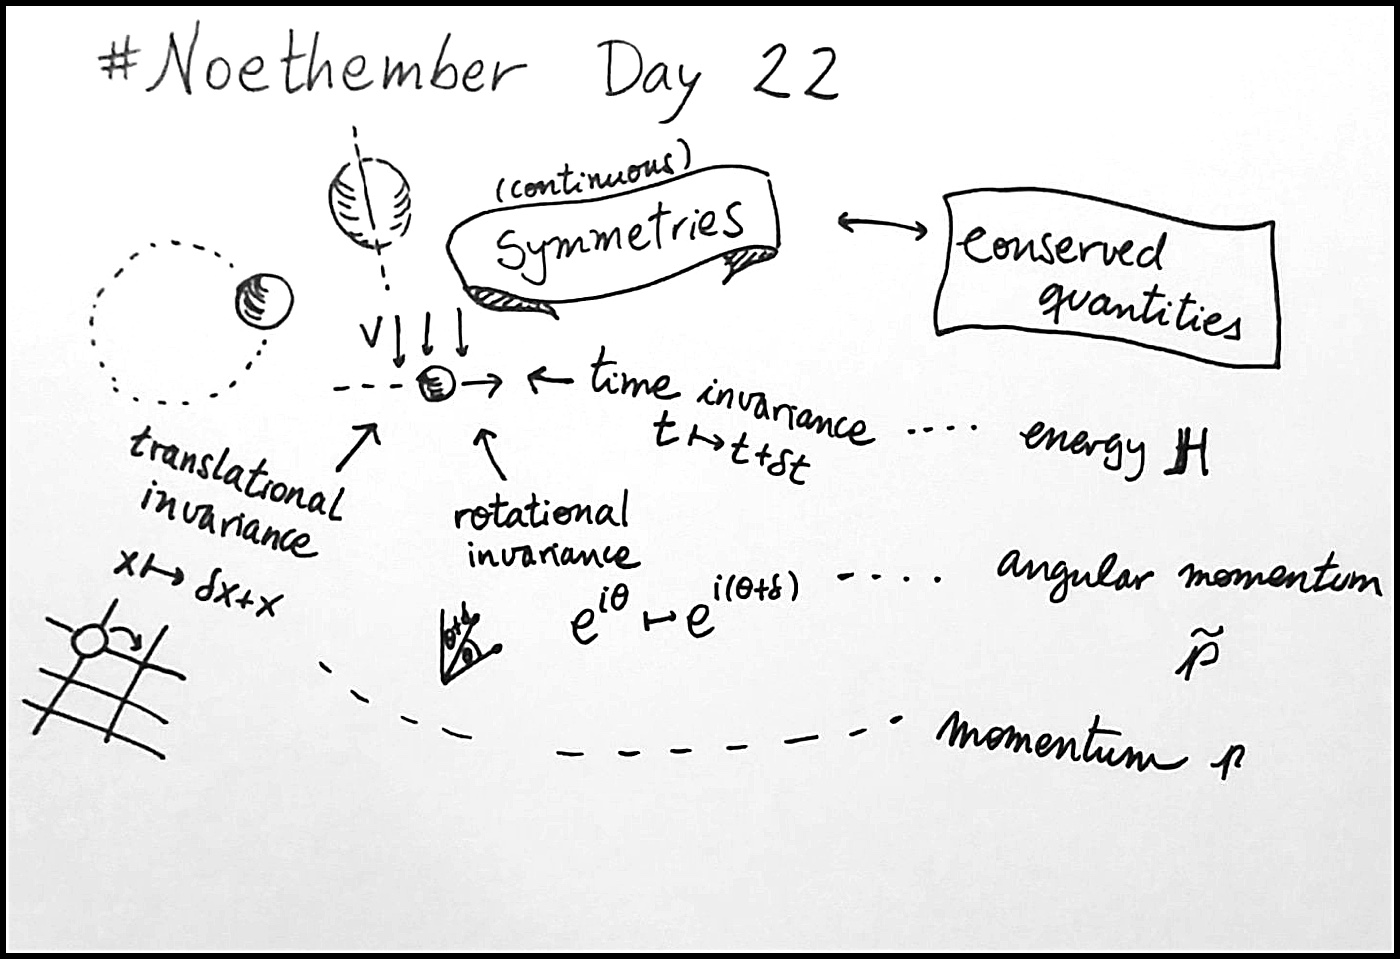 #Noethember Day 22
(continuous)
Symmetries
conserved
quantities
V
time invariance
t ↦ t+δt
energy H
translational
invariance
x ↦ δx+x
rotational
invariance
e^{iθ} ↦ e^{i(θ+δ)}
θ+δ
θ
angular momentum
p̃
momentum p